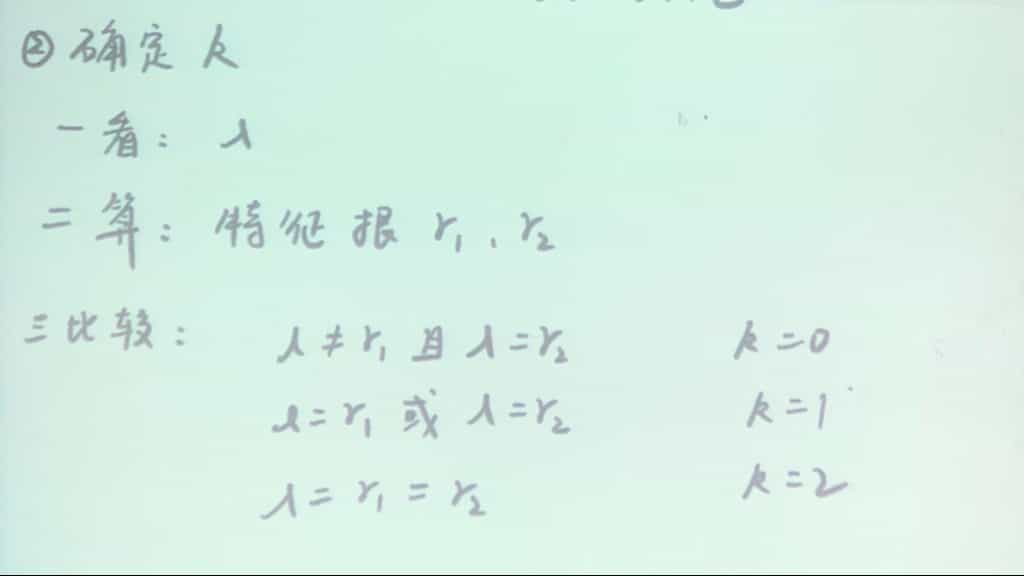 ② 确定 k
一看: λ
二算: 特征根 r₁、r₂
三比较: λ≠r₁ 且 λ=r₂ k=0
λ=r₁ 或 λ=r₂ k=1
λ=r₁=r₂ k=2